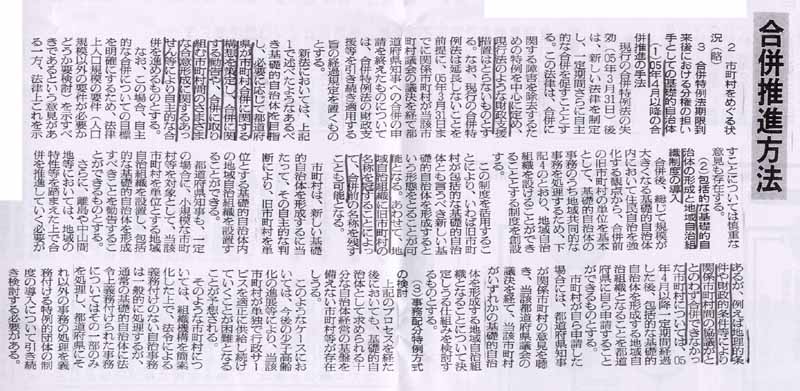 合併推進方法
2 市町村をめぐる状
況(略)
3 合併特例法期限到
来後における分権の担い
手としての基礎的自治体
(1)'05年4月以降の合
併推進の手法
現行の合併特例法の失
効('05年3月31日)後
は、新しい法律を制定
し、一定期間さらに自主
的な合併を促すこととす
る。この法律は、合併に
関する障害を除去するた
めの特例を中心に定め、
現行法のような財政支援
措置はとらないものとす
る。なお、現行の合併特
例法は延長しないことを
前提に、'05年3月31日ま
でに関係市町村が当該市
町村議会の議決を経て都
道府県知事への合併の申
請を終えたものについて
は、合併特例法の財政支
援等を引き続き適用する
旨の経過規定を置くもの
とする。
新法においては、上記
1で述べたようなあるべ
き基礎的自治体を目指
し、必要に応じて都道府
県が市町村合併に関する
構想を策定し、合併に関
する勧告、合併に取り
組む市町村間のさまざま
な合意形成に関するあっ
せん等により自主的な合
併を進めるものとする。
なお、この場合、自主
的な合併についての目標
を明確にするため、法律
上人口規模の要件(人口
規模以外の要件が必要か
どうか要検討)を示すべ
きであるという意見があ
る一方、法律上これを示
すことについては慎重な
意見も存在する。
(2)包括的な基礎的自
治体の形成と地域自治組
織制度の導入
合併後、総じて規模が
大きくなる基礎的自治体
内において住民自治を強
化する観点から、合併前
の旧市町村の単位を基本
として、基礎的自治体の
事務のうち地域共同的な
事務を処理するため、下
記4のとおり、地域自治
組織を設けることができ
ることとする制度を創設
する。
この制度を活用するこ
とにより、いわば旧市町
村が包括的な基礎的自治
体とも言うべき新しい基
礎的自治体を形成すると
いう形態をとることが可
能となる。あわせて、地
域自治組織に旧市町村の
名称を冠することによっ
て、合併前の名称を残す
ことも可能となる。
市町村は、新しい基礎
的自治体を形成するに当
たって、その自主的な判
断により、旧市町村を単
位とする基礎的自治体内
の地域自治組織を設置す
ることができる。
都道府県知事も、一定
の場合に、小規模な市町
村等を対象として、当該
市町村を単位とする地域
自治組織を設置し、包括
的な基礎的自治体を形成
すべきことを勧告するこ
とができるものとする。
さらに、離島や中山間
地域においては、地域の
特性等を踏まえた上で合
併を推進していく必要が
あるが、例えば地理的条
件や財政的条件等により
関係市町村間の協議がと
とのわず合併できなかっ
た市町村については、'05
年4月以降一定期間経過
した後、包括的な基礎的
自治体を形成する地域自
治組織となることを都道
府県に自ら申請すること
ができるものとする。
市町村が自ら申請した
場合には、都道府県知事
が関係市町村の意見を聴
き、当該都道府県議会の
議決を経て、当該市町村
がいずれかの基礎的自治
体を形成する地域自治組
織となることについて決
定しうる仕組みを検討す
るものとする。
(3)事務配分特例方式
の検討
上記のプロセスを経た
後においても、基礎的自
治体として求められる十
分な自治体経営の基盤を
備えない市町村等が存在
しうる。
このようなケースにお
いては、今後の少子高齢
化の進展等により、当該
市町村が単独で行政サー
ビスを適正に供給し続け
ていくことが困難となる
ことが予想される。
そのような市町村につ
いては、組織機構を簡素
化した上で、法令による
義務付けのない自治事務
は一般的に処理するが、
通常の基礎的自治体に法
令上義務付けられた事務
については一部のみ
を処理し、都道府県にそ
れ以外の事務の処理を義
務付ける特例的団体の制
度の導入について引き続
き検討する必要がある。